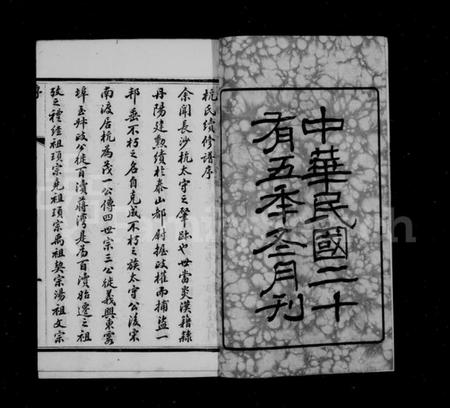 中華民國二十
有五年冬月刊
杭氏續修譜序
余聞長沙杭太守之肇跡也世當炎漢籍隸
丹陽建勲績於泰山都尉握政權而捕盜一
邦垂不朽之名自克成不朽之族太守公後宋
南渡居杭為茂一公傳四世宗三公徙義興東霧
埠至舜政公徙百瀆蔣灣是為百瀆始遷之祖
攷之禮經祖頊宗堯祖頊宗禹祖契宗湯祖文宗